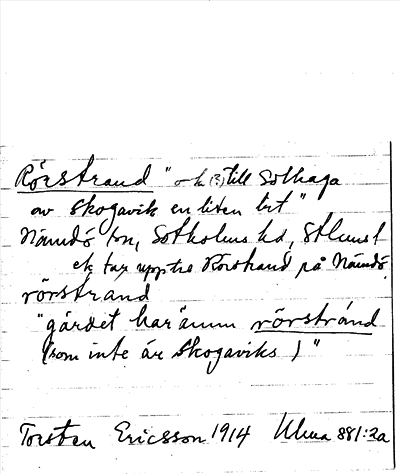 Rörstrand "o h (?) till Solhaga
av Skogavik en liten bit"
Nämdö sn, Sotholms hd, Sthms l
ek tar upp tre Rörstrand på Nämdö.
rörstrand
"gärdet har ännu rörstrånd
(som inte är Skogaviks)"
Torsten Ericsson 1914 Ulma 881:2a